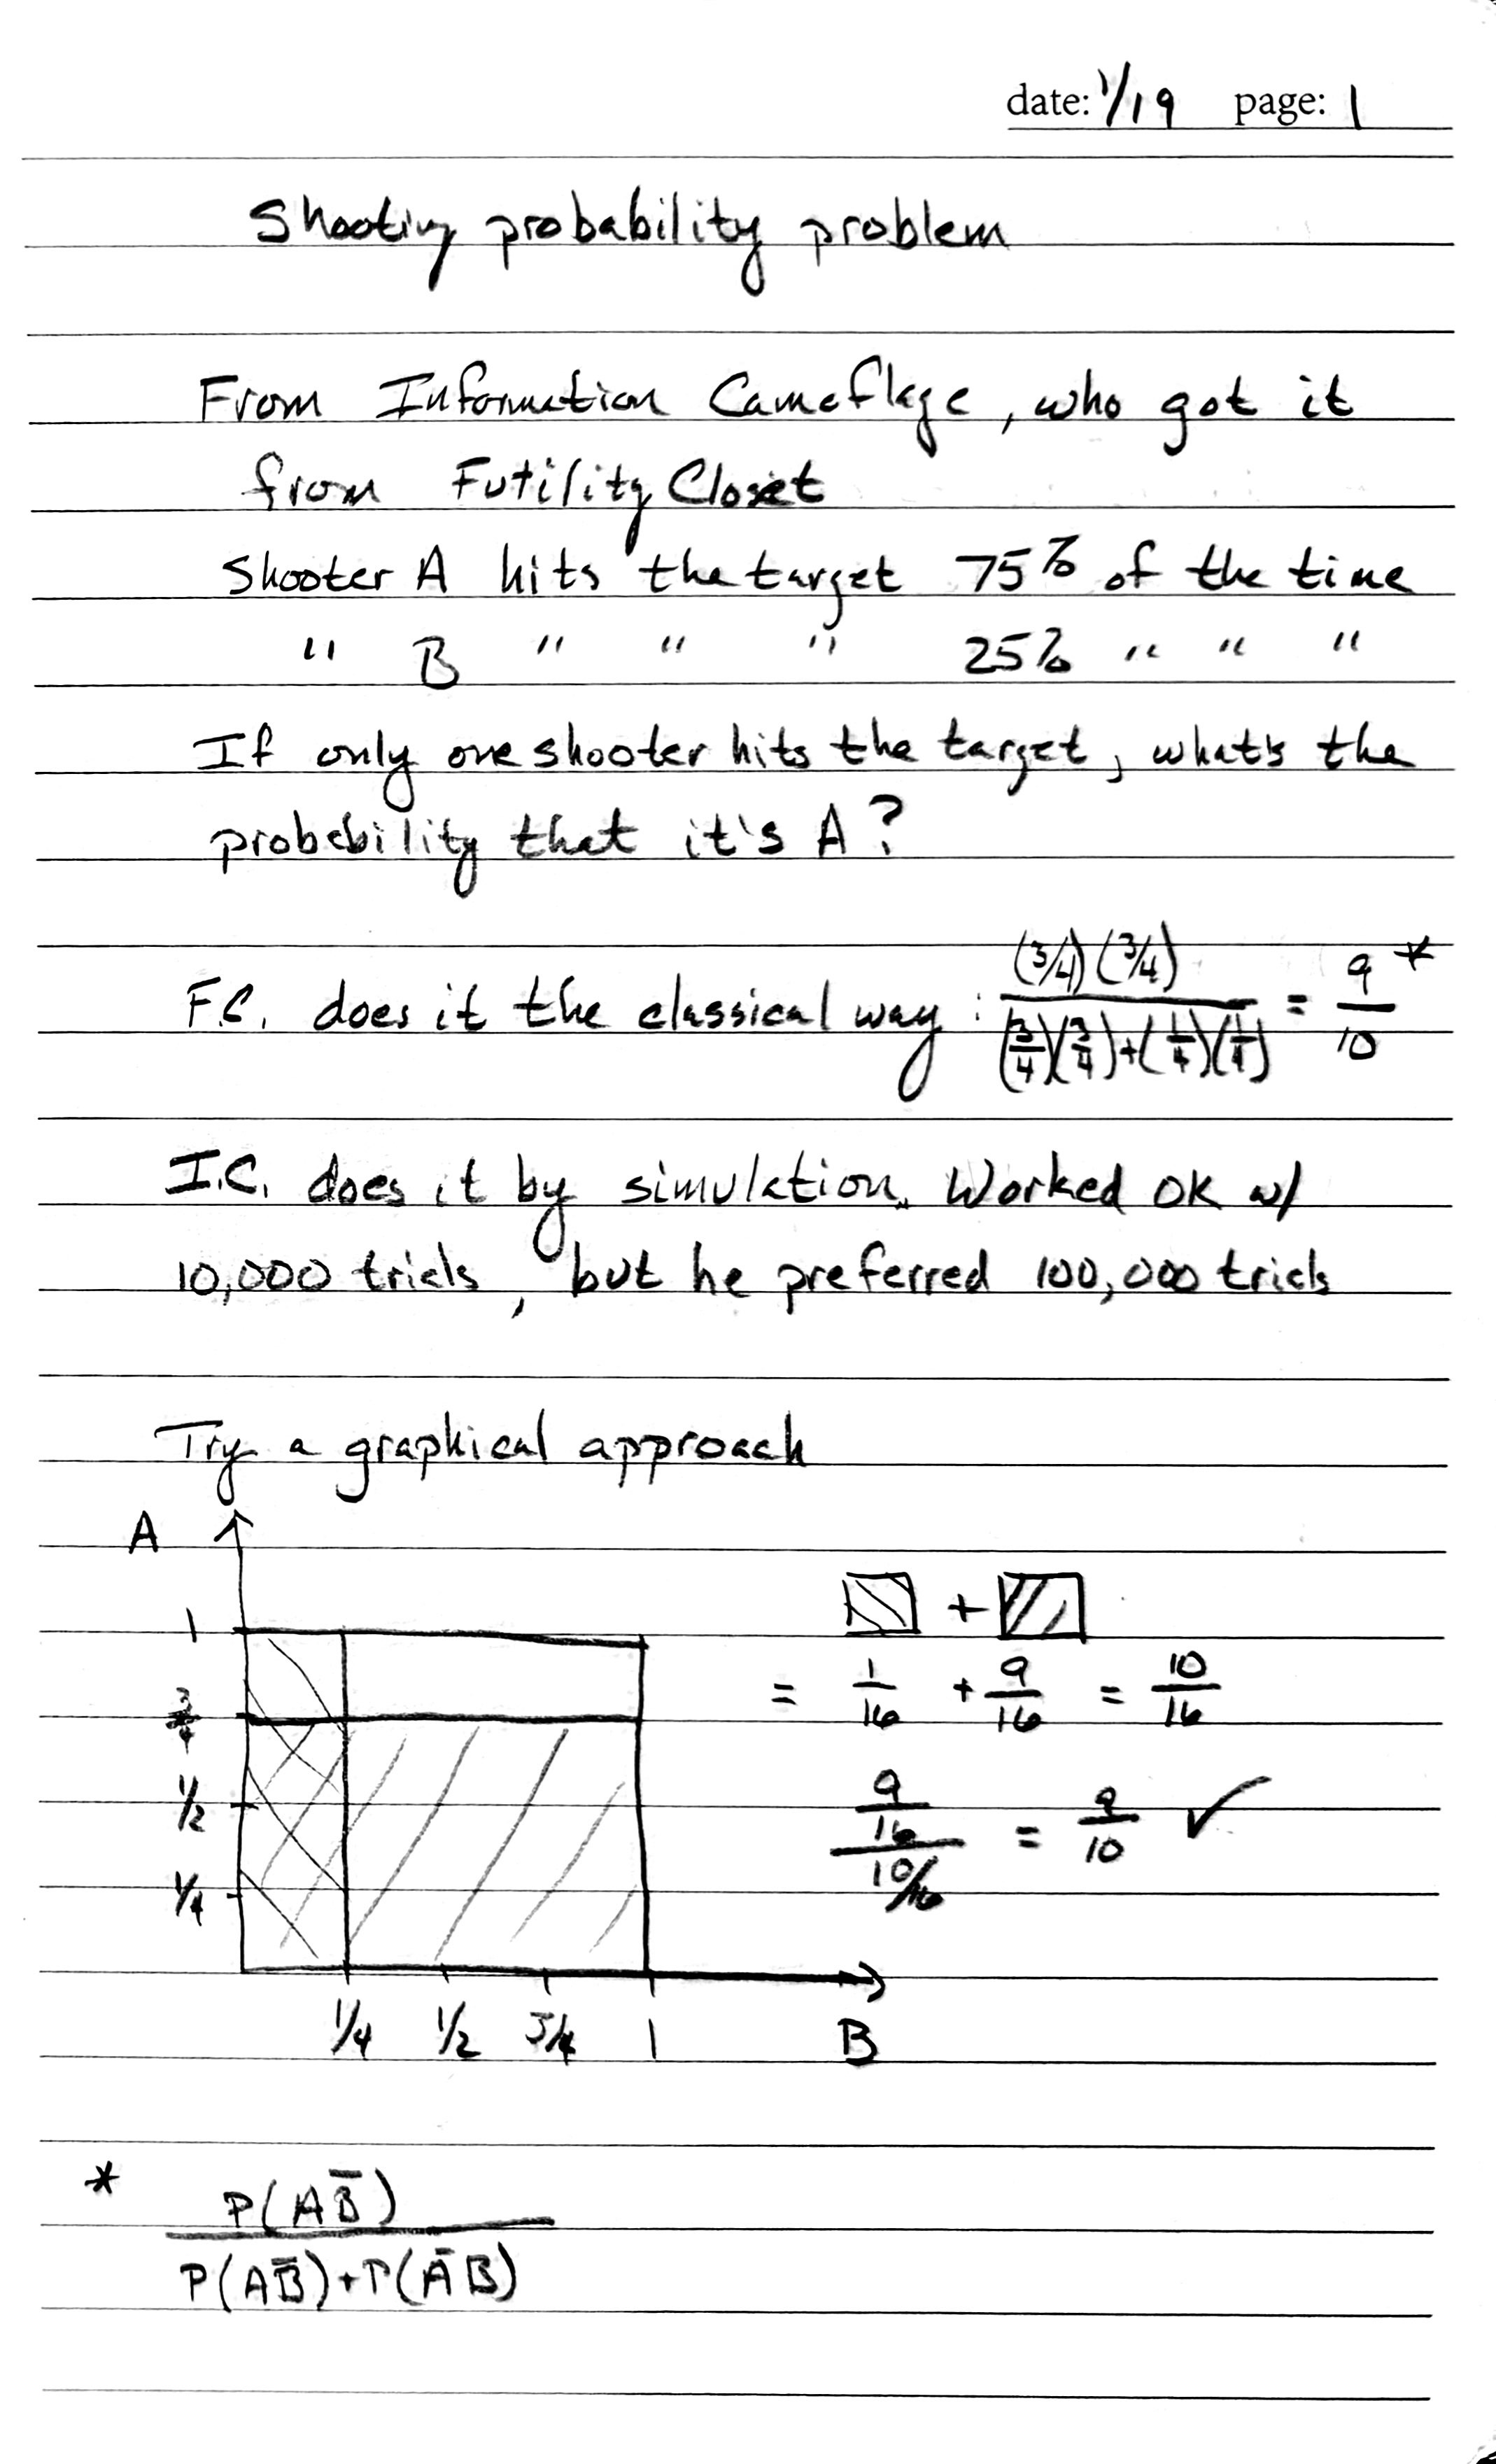 date: 1/19 page: 1
Shooting probability problem
From Information Cameflage, who got it
from Futility Closet
Shooter A hits the target 75% of the time
" B " " " 25% " " "
If only one shooter hits the target, what's the
probability that it's A?
F.C. does it the classical way: (3/4)(3/4) / (3/4)(3/4)+(1/4)(1/4) = 9/10 *
I.C. does it by simulation. Worked OK w/
10,000 trials, but he preferred 100,000 trials
Try a graphical approach
A
1
3/4
1/2
1/4
1/4 1/2 3/4 1 B
+
= 1/16 + 9/16 = 10/16
9/16 / 10/16 = 9/10 ✓
* P(AB̅) / P(AB̅)+P(A̅B)